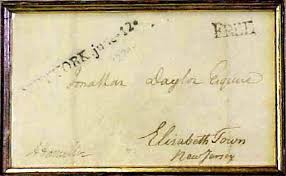 NEW YORK june 12
FREE
Jonathan Dayton Esquire
Elizabeth Town
New Jersey
AHamilton